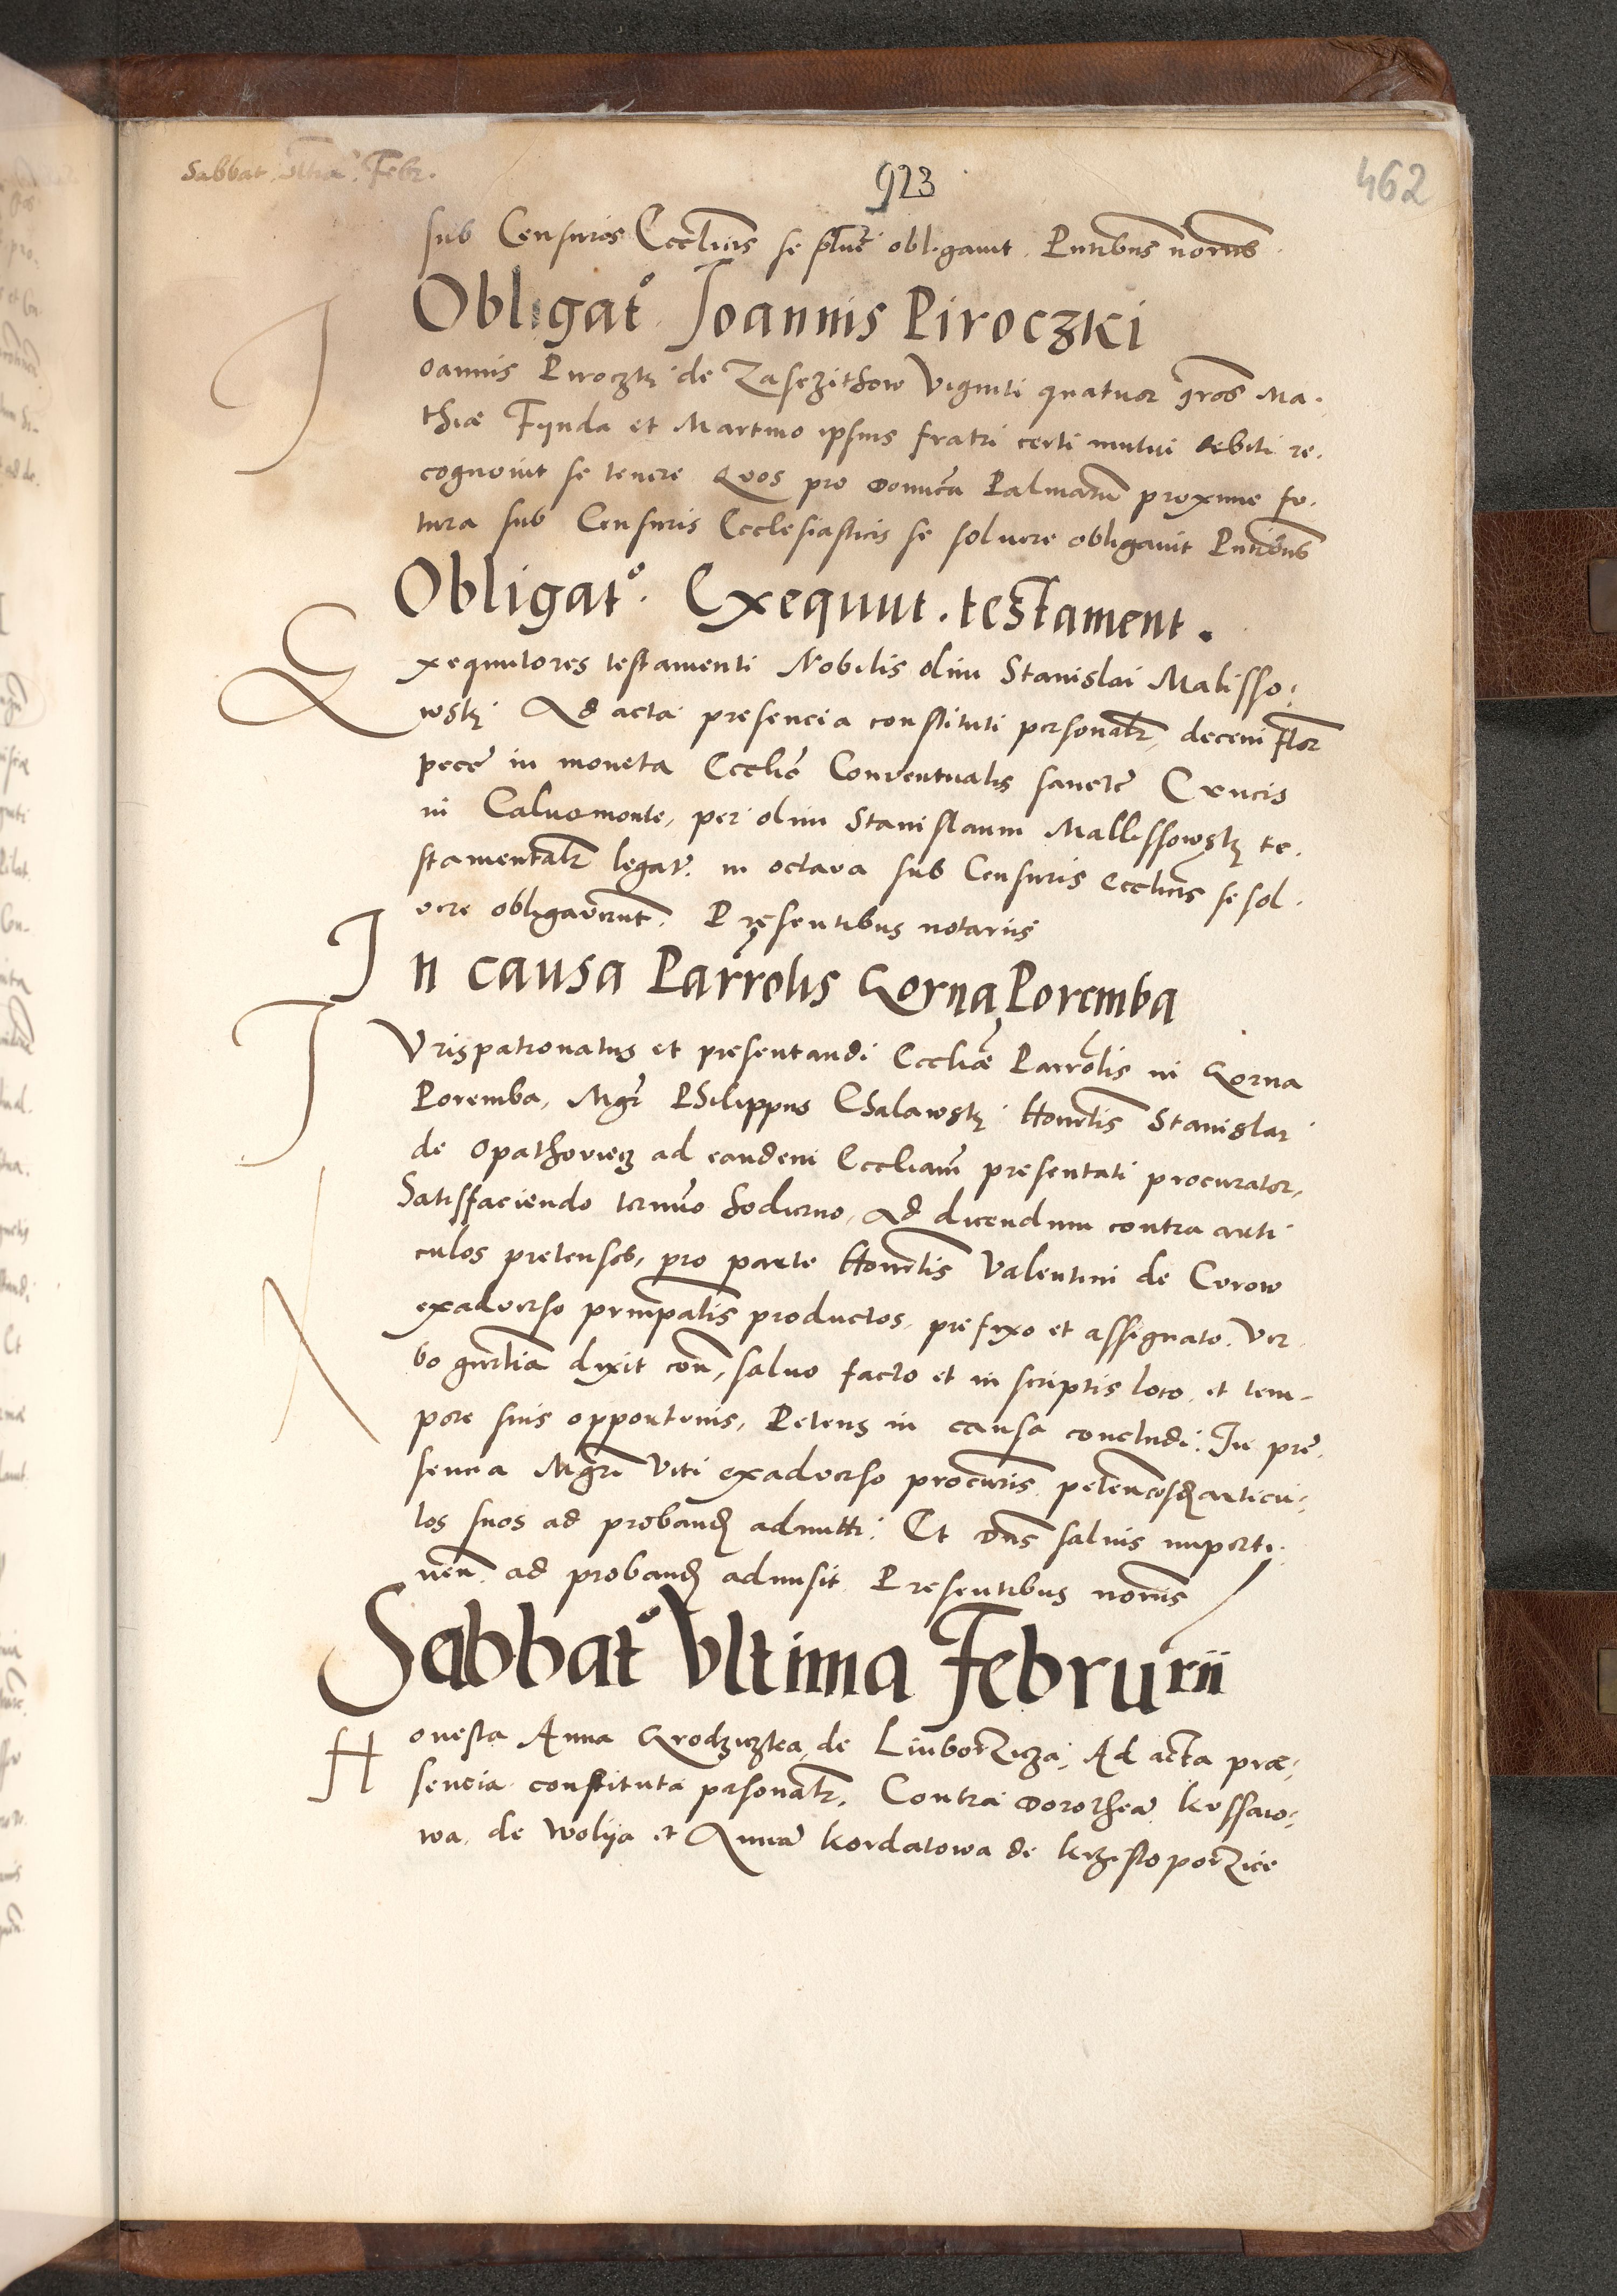 Sabbat. Vltia. Febr.
923
462
sub Censuris Ecclicis se soluere obligauit. Pntibus notariis
Obligatº. Joannis Piroczki
Joannis Piroczkj de Zasezithow Viginti quatuor gros Ma.
thiæ Fynda et Martino ipsius fratri certi mutui debiti re.
cognouit se tenere Quos pro Domica Palmarum proxime fu.
tura sub Censuris Ecclesiasticis se soluere obligauit Pntibus
Obligatº. Exequut. testament.
Exequutores testamenti Nobilis olim Stanislai Malisso,
wskj Ad acta presencia constituti personalr, decem flor
pecē in moneta Ecclīe Conventualis sancte Crucis
in Caluomonte, per olim Stanislaum Mallissowskj te.
stamentalr legat. in octaua sub Censuris Ecclicis se sol.
vere obligauerunt. Presentibus notariis
In causa Parrolis Gorna Poremba
JVrispatronatus et presentandi Eccliæ Parrolis in Gorna
Poremba, Mgr Philippus Chalawskj Honorlis Stanislai
de Opathowiecz ad eandem Eccliam presentati procurator,
Satisfaciendo termino hodierno, Ad dicendum contra arti
culos pretensos, pro parte Honorlis Valentini de Cerow
exaduerso principalis productos, prefixo et assignato. Ver
bo gnrālia dixit con, saluo facto et in scriptis loco et tem-
pore suis opportunis, Petens in causa concludi. In prē
sencia Mgri Viti exaduerso procuris petencosq articu-
los suos ad proband admitti. Et Dns saluis imperti
nen. ad proband admisit Presentibus notariis
Sabbatº Vltima Februarii
Honesta Anna Grodziczka de Liuborzicza, Ad acta præ,
sencia constituta prsonalr, Contra Dorothea Kossaro,
wa de Wolya et Anna Kordatowa de Krzistoporzice